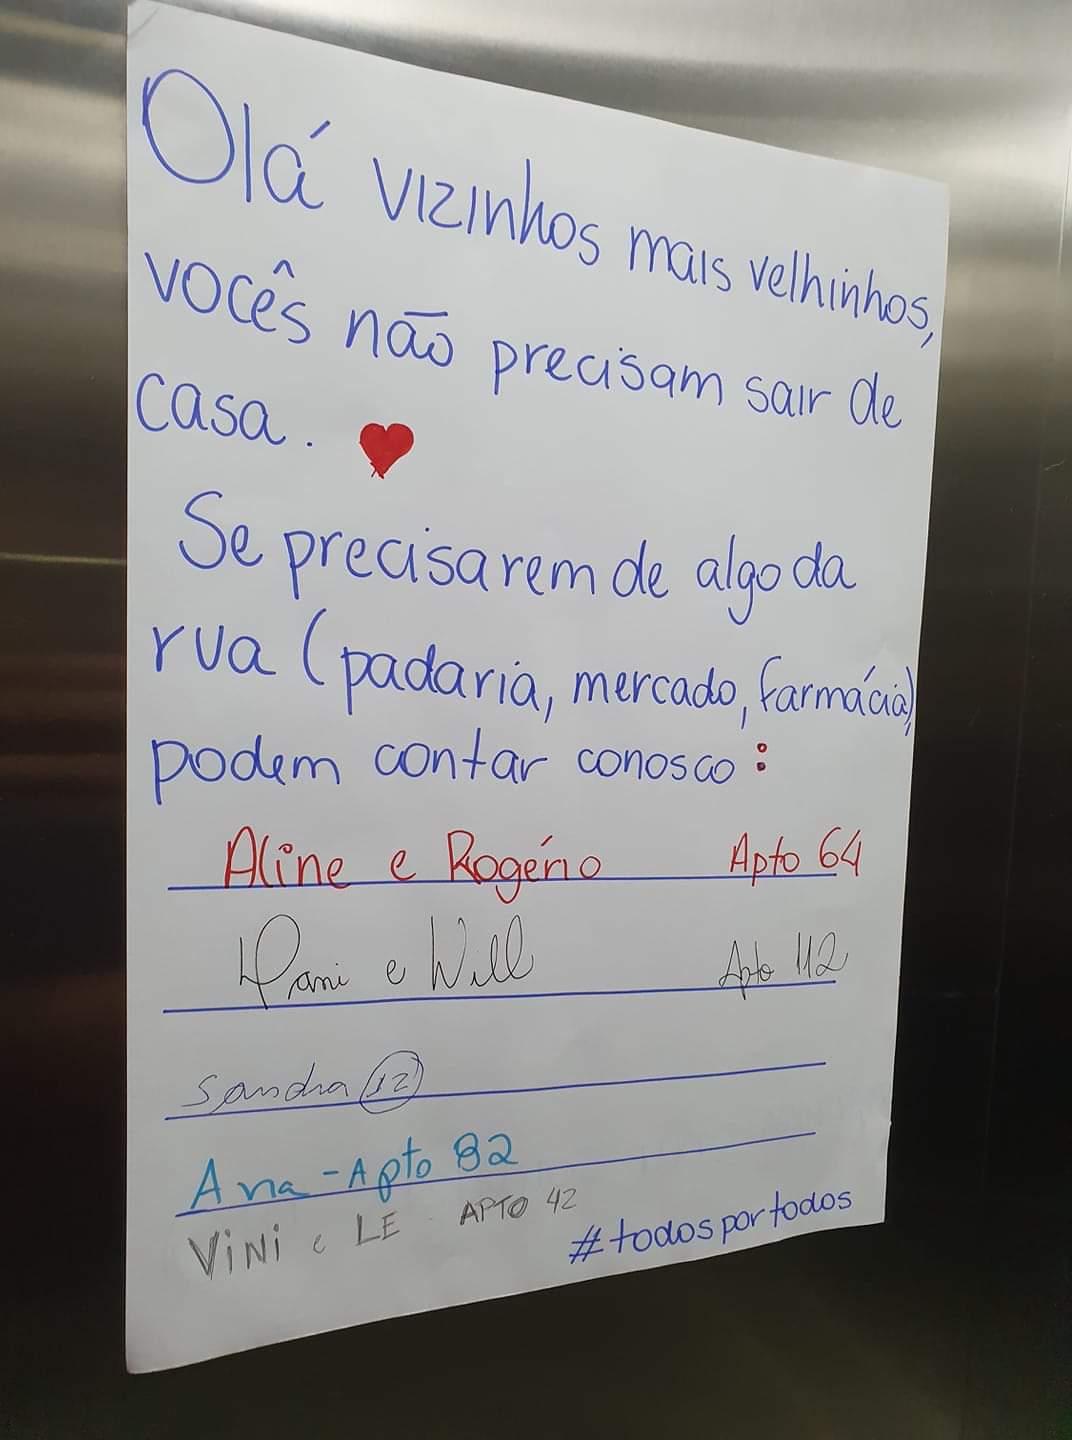 Olá vizinhos mais velhinhos,
vocês não precisam sair de
casa.
Se precisarem de algo da
rua (padaria, mercado, farmácia),
podem contar conosco:
Aline e Rogério Apto 64
Dani e Will Apto 112
Sandra 12
Ana - Apto 82
ViNi e LE APTO 42
#todosportodos